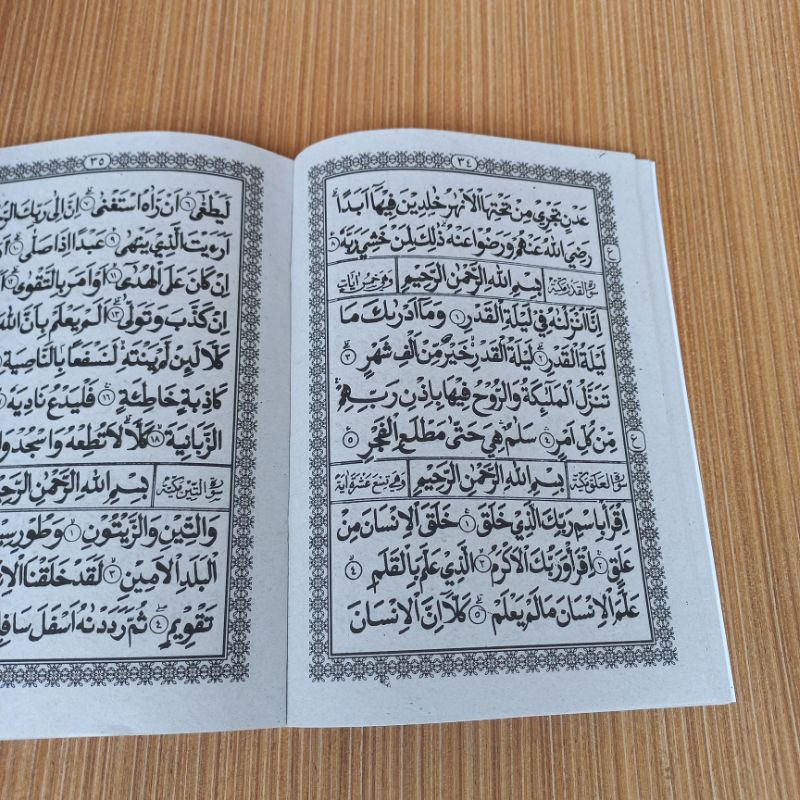 ٣٤
عَدْنٍ تَجْرِيْ مِنْ تَحْتِهَا الْاَنْهٰرُ خٰلِدِيْنَ فِيْهَآ اَبَدًا
رَضِيَ اللهُ عَنْهُمْ وَرَضُوْا عَنْهُ ذٰلِكَ لِمَنْ خَشِيَ رَبَّهُ ٨
سورة القدر مكية بِسْمِ اللهِ الرَّحْمٰنِ الرَّحِيْمِ وهي خمس آيات
اِنَّآ اَنْزَلْنٰهُ فِيْ لَيْلَةِ الْقَدْرِ ١ وَمَآ اَدْرٰىكَ مَا
لَيْلَةُ الْقَدْرِ ٢ لَيْلَةُ الْقَدْرِ خَيْرٌ مِنْ اَلْفِ شَهْرٍ ٣
تَنَزَّلُ الْمَلٰٓئِكَةُ وَالرُّوْحُ فِيْهَا بِاِذْنِ رَبِّهِمْ
مِنْ كُلِّ اَمْرٍ ٤ سَلٰمٌ هِيَ حَتّٰى مَطْلَعِ الْفَجْرِ ٥
سورة العلق مكية بِسْمِ اللهِ الرَّحْمٰنِ الرَّحِيْمِ وهي تسع عشرة اية
اِقْرَأْ بِاسْمِ رَبِّكَ الَّذِيْ خَلَقَ ١ خَلَقَ الْاِنْسَانَ مِنْ
عَلَقٍ ٢ اِقْرَأْ وَرَبُّكَ الْاَكْرَمُ ٣ الَّذِيْ عَلَّمَ بِالْقَلَمِ ٤
عَلَّمَ الْاِنْسَانَ مَالَمْ يَعْلَمْ ٥ كَلَّآ اِنَّ الْاِنْسَانَ
٣٥
لَيَطْغٰى ٦ اَنْ رَاٰهُ اسْتَغْنٰى ٧ اِنَّ اِلٰى رَبِّكَ
اَرَءَيْتَ الَّذِيْ يَنْهٰى ٩ عَبْدًا اِذَا صَلّٰى ١٠
اِنْ كَانَ عَلَى الْهُدٰى ١١ اَوْ اَمَرَ بِالتَّقْوٰى ١٢
اِنْ كَذَّبَ وَتَوَلّٰى ١٣ اَلَمْ يَعْلَمْ بِاَنَّ اللهَ
كَلَّا لَئِنْ لَمْ يَنْتَهِ لَنَسْفَعًا بِالنَّاصِيَةِ
كَاذِبَةٍ خَاطِئَةٍ ١٦ فَلْيَدْعُ نَادِيَهُ
الزَّبَانِيَةَ ١٨ كَلَّا لَا تُطِعْهُ وَاسْجُدْ
سورة التين مكية بِسْمِ اللهِ الرَّحْمٰنِ
وَالتِّيْنِ وَالزَّيْتُوْنِ ١ وَطُوْرِ
الْبَلَدِ الْاَمِيْنِ ٣ لَقَدْ خَلَقْنَا
تَقْوِيْمٍ ٤ ثُمَّ رَدَدْنٰهُ اَسْفَلَ